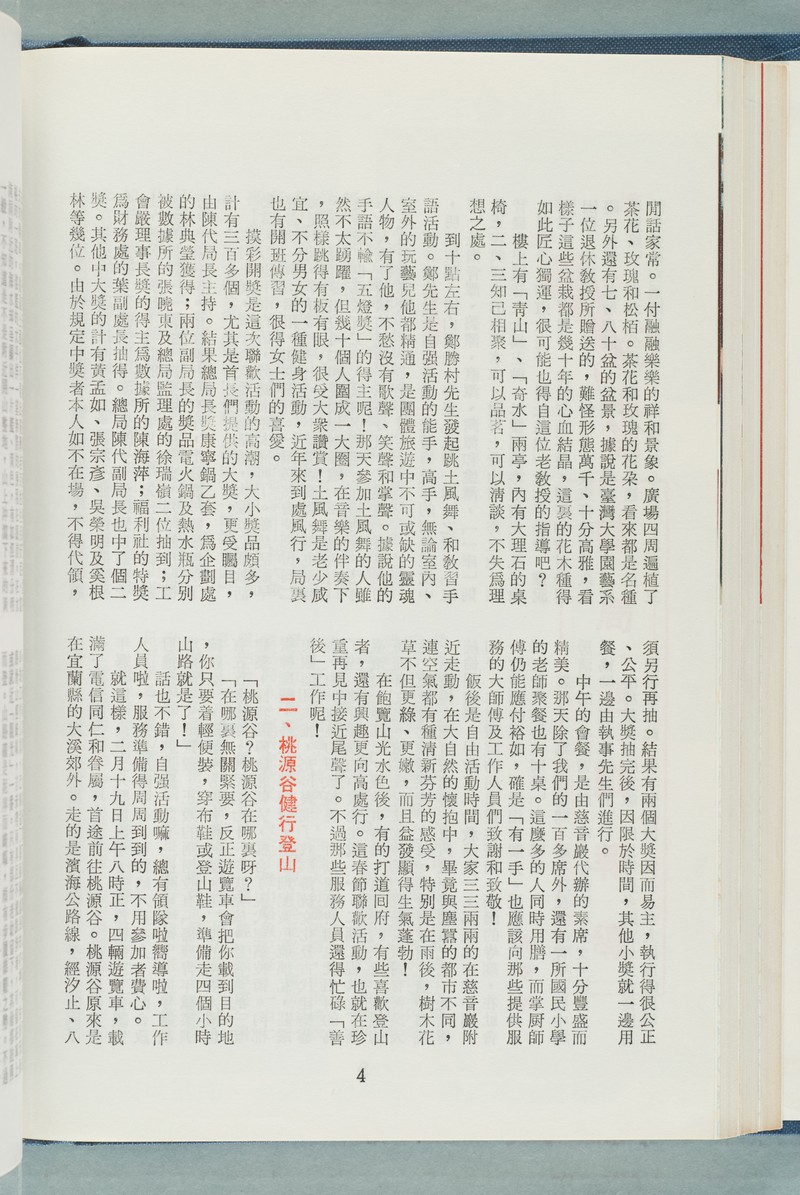 閒話家常。一付融融樂樂的祥和景象。廣場四周遍植了
茶花、玫瑰和松栢。茶花和玫瑰的花朶，看來都是名種
。另外還有七、八十盆的盆景，據說是臺灣大學園藝系
一位退休教授所贈送的，難怪形態萬千、十分高雅，看
樣子這些盆栽都是幾十年的心血結晶，這裏的花木種得
如此匠心獨運，很可能也得自這位老教授的指導吧？
樓上有「靑山」、「奇水」兩亭，內有大理石的桌
椅，二、三知己相聚，可以品茗，可以淸談，不失爲理
想之處。
到十點左右，鄭勝村先生發起跳土風舞、和教習手
語活動。鄭先生是自强活動的能手，高手，無論室內、
室外的玩藝兒他都精通，是團體旅遊中不可或缺的靈魂
人物，有了他，不愁沒有歌聲、笑聲和掌聲。據說他的
手語不輸「五燈獎」的得主呢！那天參加土風舞的人雖
然不太踴躍，但幾十個人圈成一大圈，在音樂的伴奏下
，照樣跳得有板有眼，很受大衆讚賞！土風舞是老少咸
宜、不分男女的一種健身活動，近年來到處風行，局裏
也有開班傳習，很得女士們的喜愛。
摸彩開獎是這次聯歡活動的高潮，大小獎品頗多，
計有三百多個，尤其是首長們提供的大獎，更受矚目，
由陳代局長主持。結果總局長獎康寧鍋乙套，爲企劃處
的林典瑩獲得；兩位副局長的獎品電火鍋及熱水瓶分別
被數據所的張曉東及總局監理處的徐瑞嶺二位抽到；工
會嚴理事長獎的得主爲數據所的陳海萍；福利社的特獎
爲財務處的葉副處長抽得。總局陳代副局長也中了個二
獎。其他中大獎的計有黃孟如、張宗彥、吳榮明及奚根
林等幾位。由於規定中獎者本人如不在場，不得代領，
須另行再抽。結果有兩個大獎因而易主，執行得很公正
、公平。大獎抽完後，因限於時間，其他小獎就一邊用
餐，一邊由執事先生們進行。
中午的會餐，是由慈音巖代辦的素席，十分豐盛而
精美。那天除了我們的一百多席外，還有一所國民小學
的老師聚餐也有十桌。這麼多的人同時用膳，而掌廚師
傅仍能應付裕如，確是「有一手」也應該向那些提供服
務的大師傅及工作人員們致謝和致敬！
飯後是自由活動時間，大家三三兩兩的在慈音巖附
近走動，在大自然的懷抱中，畢竟與塵囂的都市不同，
連空氣都有種淸新芬芳的感受，特別是在雨後，樹木花
草不但更綠、更嫩，而且益發顯得生氣蓬勃！
在飽覽山光水色後，有的打道回府，有些喜歡登山
者，還有興趣更向高處行。這春節聯歡活動，也就在珍
重再見中接近尾聲了。不過那些服務人員還得忙碌「善
後」工作呢！
二、桃源谷健行登山
「桃源谷？桃源谷在哪裏呀？」
「在哪裏無關緊要，反正遊覽車會把你載到目的地
，你只要着輕便裝，穿布鞋或登山鞋，準備走四個小時
山路就是了！」
話也不錯，自强活動嘛，總有領隊啦嚮導啦，工作
人員啦，服務準備得周周到到的，不用參加者費心。
就這樣，二月十九日上午八時正，四輛遊覽車，載
滿了電信同仁和眷屬，首途前往桃源谷。桃源谷原來是
在宜蘭縣的大溪郊外。走的是濱海公路線，經汐止、八
4